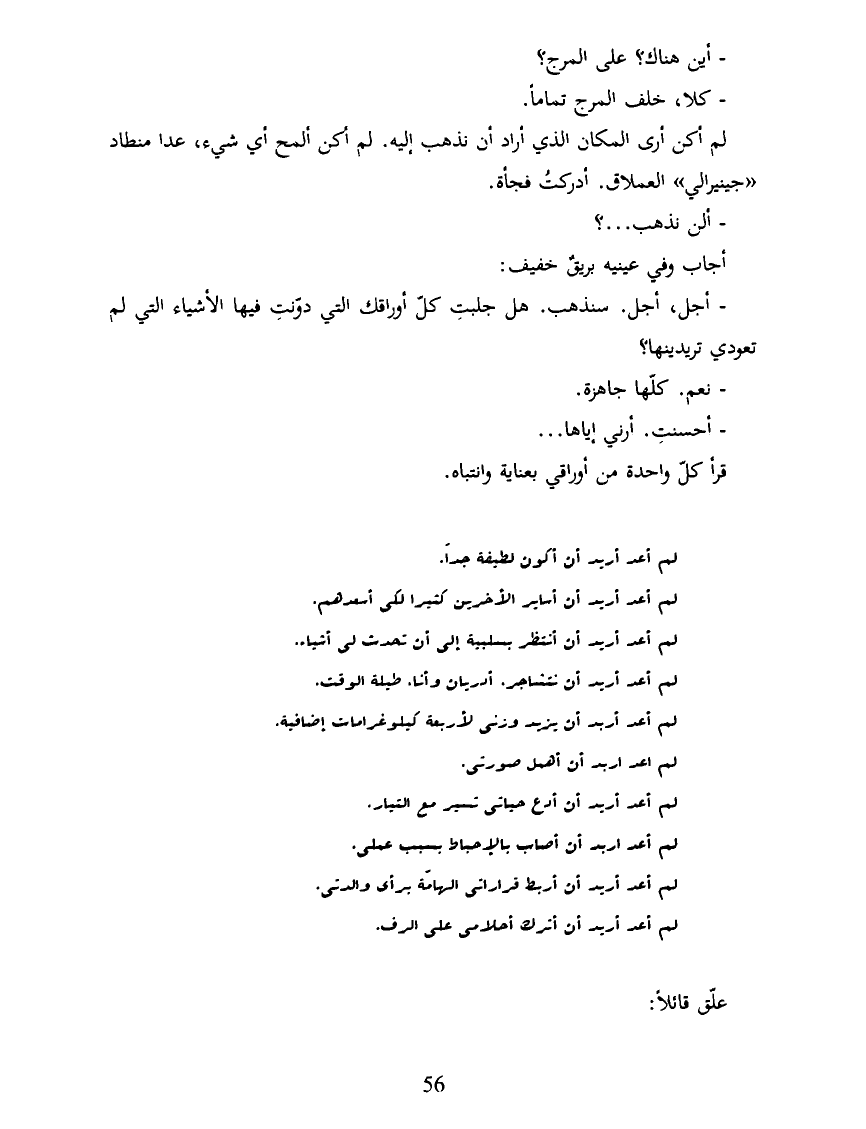 - أين هناك؟ على المرج؟
- كلا، خلف المرج تماماً.
لم أكن أرى المكان الذي أراد أن نذهب إليه. لم أكن ألمح أي شيء، عدا منطاد
«جينيرالي» العملاق. أدركتُ فجأة.
- ألن نذهب...؟
أجاب وفي عينيه بريقٌ خفيف:
- أجل، أجل. سنذهب. هل جلبتِ كلّ أوراقك التي دوّنتِ فيها الأشياء التي لم
تعودي تريدينها؟
- نعم. كلّها جاهزة.
- أحسنتِ. أرني إياها...
قرأ كلّ واحدة من أوراقي بعناية وانتباه.
لم أعد أريد أن أكون لطيفة جداً.
لم أعد أريد أن أساير الآخرين كثيرا لكي أسعدهم.
لم أعد أريد أن أنتظر بسلبية إلى أن تحدث لي أشياء.
لم أعد أريد أن نتشاجر، أدريان وأنا، طيلة الوقت.
لم أعد أريد أن يزيد وزني لأربعة كيلوغرامات إضافية.
لم اعد اريد أن أهمل صورتي.
لم أعد أريد أن أدع حياتي تسير مع التيار.
لم أعد اريد أن أصاب بالإحباط بسبب عملي.
لم أعد أريد أن أربط قراراتي الهامّة برأي والدتي.
لم أعد أريد أن أترك أحلامي على الرف.
علّق قائلاً:
56